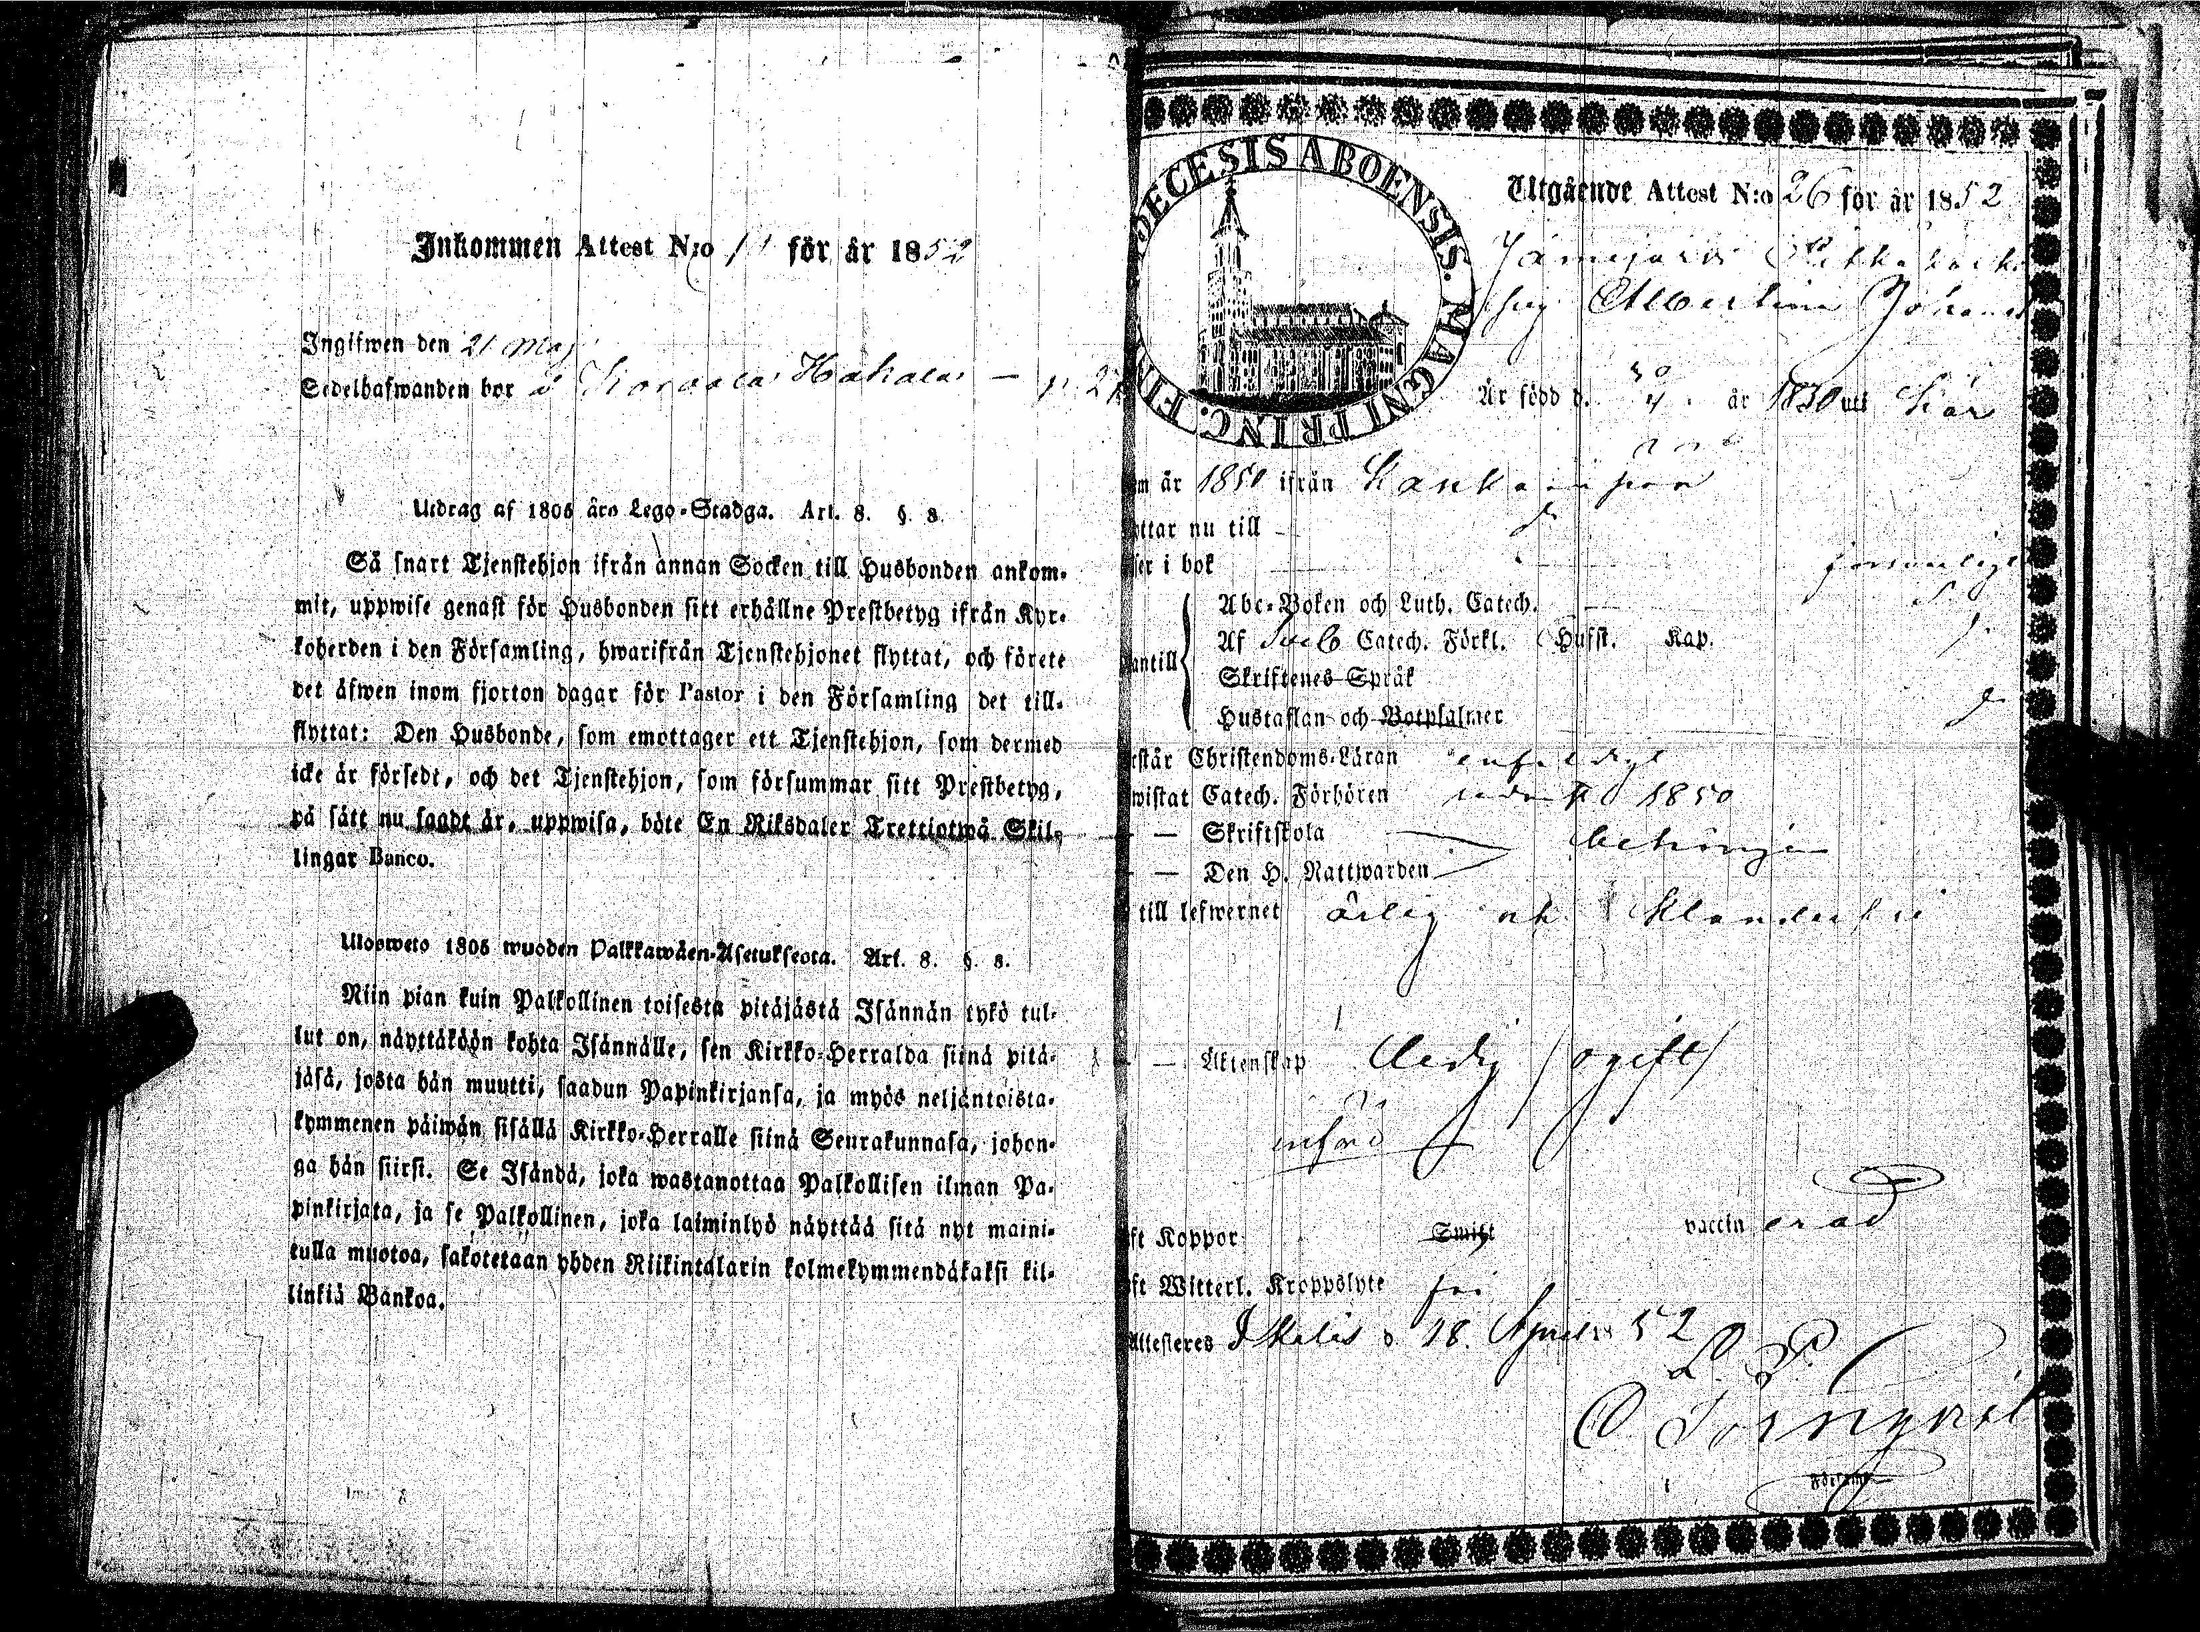 Inkommen Attest N:o 11 för år 1852
Ingifwen den 21 Maj
Sedelhafwanden bor i Hakala — p. 27
Utdrag af 1805 års Lego-Stadga. Art. 8. §. 8.
Så snart Tjenstehjon ifrån annan Socken till Husbonden ankom-
mit, uppwise genast för Husbonden sitt erhållne Prestbetyg ifrån Kyr-
koherden i den Församling, hwarifrån Tjenstehjonet flyttat, och förete
det äfwen inom fjorton dagar för Pastor i den Församling det till-
flyttat: Den Husbonde, som emottager ett Tjenstehjon, som dermed
icke är försedt, och det Tjenstehjon, som försummar sitt Prestbetyg,
på sätt nu sagdt är, uppwisa, böte En Riksdaler Trettiotwå Skil-
lingar Banco.
Ulosweto 1805 wuoden Palkkawäen-Asetuksesta. Art. 8. §. 8.
Niin pian kuin Palkollinen toisesta pitäjästä Isännän tykö tul-
lut on, näyttäköön kohta Isännälle, sen Kirkko-Herralda siinä pitä-
jäsä, josta hän muutti, saadun Papinkirjansa, ja myös neljäntoista-
kymmenen päiwän sisällä Kirkko-Herralle siinä Seurakunnasa, johon-
ga hän siirsi. Se Isändä, joka wastanottaa Palkollisen ilman Pa-
pinkirjata, ja se Palkollinen, joka laiminlyö näyttää sitä nyt maini-
tulla muotoa, sakotetaan yhden Riikintalarin kolmekymmendäkaksi kil-
linkiä Bankoa.
DIOECESIS ABOENSIS. MAGNI PRINC. FIN
Utgående Attest N:o 26 för år 1852
Jämijärvi
Albertina Johans
Är född d. 30/4 år 1830 uti
om år 1850 ifrån Kankaanpää
yttar nu till
ser i bok försvarligt
Abc-Boken och Luth. Catech.
Af Sveb Catech. Förkl. Husft. Kap.
antill
Skriftenes Språk
Hustaflan och Botpsalmer
rstår Christendoms-Läran enfaldigt
wistat Catech. Förhören sedan 1850
— — Skriftskola behörigen
— — Den H. Nattwarden
till lefwernet ärlig och klanderfri
— — Äktenskap ledig (ogift)
införd
ft Koppor Smitt vaccin erad
ft Witterl. Kroppslyte fri
Attesteres Ikalis d 18. April 1852
Församl.